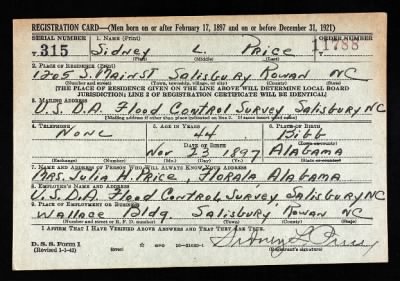 REGISTRATION CARD—(Men born on or after February 17, 1897 and on or before December 31, 1921)
SERIAL NUMBER 1. NAME (Print) ORDER NUMBER
T 315 Sidney L. Price 11788
(First) (Middle) (Last)
2. PLACE OF RESIDENCE (Print)
1205 S. Main St Salisbury Rowan NC
(Number and street) (Town, township, village, or city) (County) (State)
[THE PLACE OF RESIDENCE GIVEN ON THE LINE ABOVE WILL DETERMINE LOCAL BOARD
JURISDICTION; LINE 2 OF REGISTRATION CERTIFICATE WILL BE IDENTICAL]
3. MAILING ADDRESS
U.S.D.A. Flood Control Survey Salisbury NC
[Mailing address if other than place indicated on line 2. If same insert word same]
4. TELEPHONE 5. AGE IN YEARS 6. PLACE OF BIRTH
None 44 Bibb
DATE OF BIRTH (Town or county)
Nov 23 1897 Alabama
(Exchange) (Number) (Mo.) (Day) (Yr.) (State or country)
7. NAME AND ADDRESS OF PERSON WHO WILL ALWAYS KNOW YOUR ADDRESS
Mrs. Julia A. Price, Florala, Alabama
8. EMPLOYER'S NAME AND ADDRESS
U.S.D.A. Flood Control Survey, Salisbury NC
9. PLACE OF EMPLOYMENT OR BUSINESS
Wallace Bldg. Salisbury Rowan NC
(Number and street or R. F. D. number) (Town) (County) (State)
I AFFIRM THAT I HAVE VERIFIED ABOVE ANSWERS AND THAT THEY ARE TRUE.
D. S. S. Form 1
(Revised 1-1-42) GPO 16-21630-1 Sidney L. Price
(Registrant's signature)